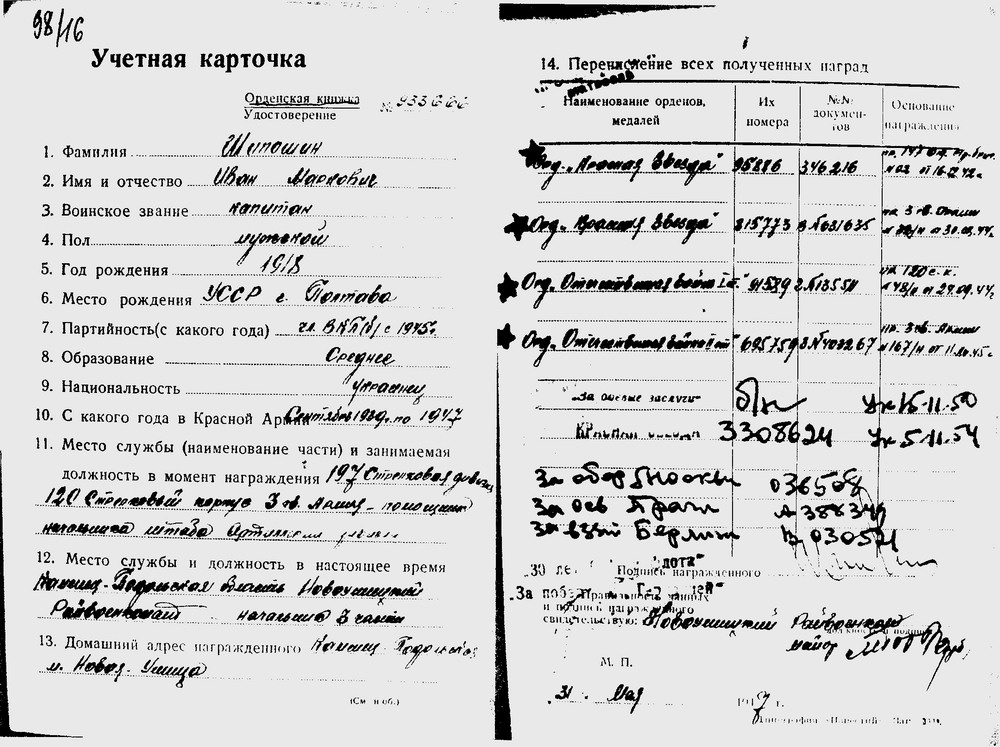 98/16
Учетная карточка
Орденская книжка
Удостоверение
№ 933666
1. Фамилия Шипошин
2. Имя и отчество Иван Маркович
3. Воинское звание капитан
4. Пол мужской
5. Год рождения 1918
6. Место рождения УССР г. Полтава
7. Партийность(с какого года) чл. ВКП(б) с 1945г.
8. Образование Среднее
9. Национальность украинец
10. С какого года в Красной Армии Сентябрь 1939г. по 1947
11. Место службы (наименование части) и занимаемая
должность в момент награждения 197 Стрелковая дивизия
120 Стрелковый корпус 3 гв. Армия - помощник
начальника штаба Артиллерии
12. Место службы и должность в настоящее время
Каменец-Подольская область Новоушицкий
Райвоенкомат начальник 3 части
13. Домашний адрес награжденного Каменец-Подольская
м. Новая-Ушица
(См. на об.)
14. Перечисление всех полученных наград
Наименование орденов, медалей
Их номера
№№ документов
Основание награждения
Орд. „Красная Звезда" 95886 346216 № 02 от 16.12.42г.
Орд. „Красная Звезда" 815773 В №681635 пр. 3 гв. Армии от 30.08.44г.
Орд. „Отечественная война I ст." 91589 №13558 пр. 120 с.к. № 48/н от 29.09.44г.
Орд. „Отечественная война II ст" 695759 №403267 пр. 3 гв. Армии №167/н от 45г
„За боевые заслуги" б/н Ук 15-11-50
Красная Звезда 3308624 Ук 5-11-54
За обор Москвы 036508
За осв Праги А 388349
За взят Берлин
30 лет
Подпись награжденного
За поб
Правильность данных
и подпись награжденного
свидетельствую: Новоушицкий Райвоенком
майор
М. П.
31 Мая 1947 г.
Типография „Известий" Зак.